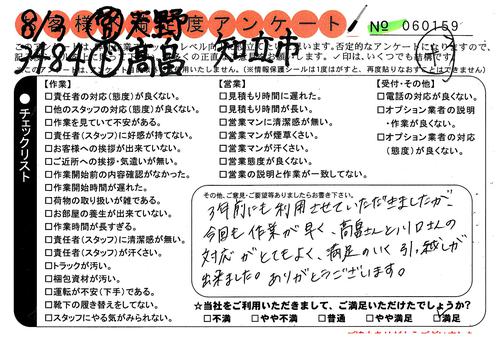 お客様の満足度アンケート
No 060169
8/3 天野
高畠 知立市
チェックリスト
【作業】
□責任者の対応(態度)が良くない。
□他のスタッフの対応(態度)が良くない。
□作業を見ていて不安がある。
□責任者(スタッフ)に好感が持てない。
□お客様への挨拶が出来ていない。
□ご近所への挨拶・気遣いが無い。
□作業開始前の内容確認がなかった。
□作業開始時間が遅れた。
□荷物の取り扱いが雑である。
□お部屋の養生が出来ていない。
□作業時間が長すぎる。
□責任者(スタッフ)に清潔感が無い。
□責任者(スタッフ)が汗くさい。
□トラックが汚い。
□梱包資材が汚い。
□運転が不安(下手)である。
□靴下の履き替えをしてない。
□スタッフにやる気がみられない。
【営業】
□見積もり時間に遅れた。
□見積もり時間が長い。
□営業マンに清潔感が無い。
□営業マンが煙草くさい。
□営業マンが汗くさい。
□営業態度が良くない。
□営業の説明と作業が一致してない。
【受付・その他】
□電話の対応が良くない。
□オプション業者の説明
・作業が良くない。
□オプション業者の対応
(態度)が良くない。
その他、ご意見・ご要望等ありましたらお書き下さい。
3月前にも利用させていただきましたが、
今回も作業が早く、高畠さんと川口さんの
対応がとてもよく、満足のいく引っ越しが
出来ました。ありがとうございます。
☆当社をご利用いただきまして、ご満足いただけたでしょうか?
□不満 □やや不満 □普通 □やや満足 □満足